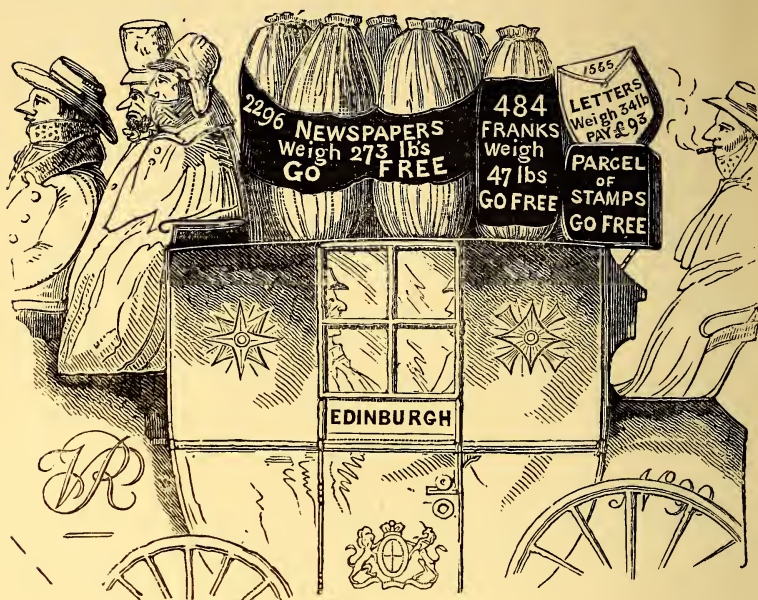 2296 NEWSPAPERS
Weigh 273 lbs
GO FREE
484
FRANKS
weigh
47 lbs
GO FREE
1565
LETTERS
Weigh 34lb
PAY £93
PARCEL
OF
STAMPS
GO FREE
EDINBURGH
VR